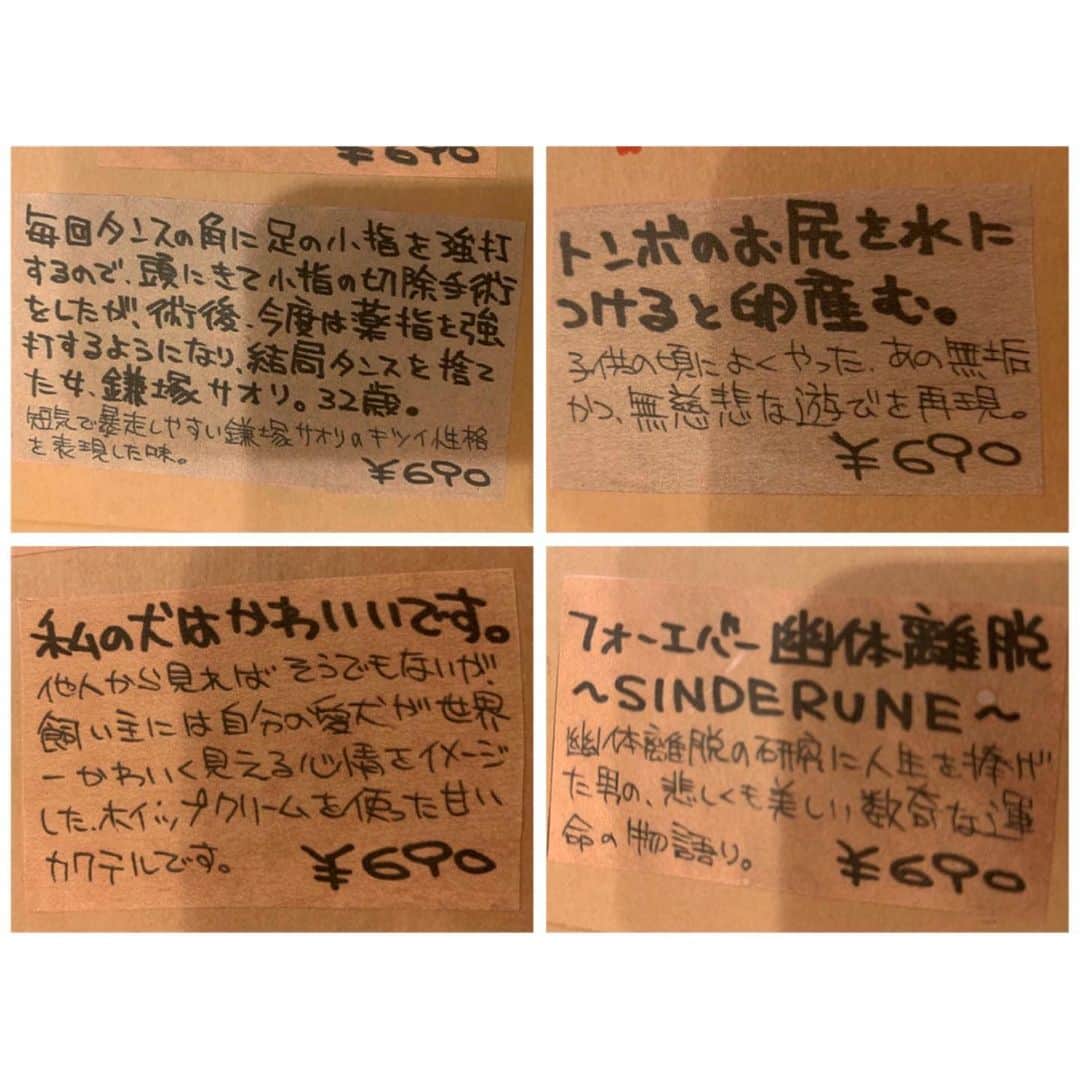 ¥690
毎回タンスの角に足の小指を強打
するので、頭にきて小指の切除手術
をしたが、術後、今度は薬指を強
打するようになり、結局タンスを捨て
た女、鎌塚サオリ。32歳。
短気で暴走しやすい鎌塚サオリのキツイ性格
を表現した味。
¥690
トンボのお尻を水に
つけると卵産む。
子供の頃によくやった、あの無垢
かつ、無慈悲な遊びを再現。
¥690
私の犬はかわいいです。
他人から見ればそうでもないが、
飼い主には自分の愛犬が世界
一かわいく見える心情をイメージ
した、ホイップクリームを使った甘い
カクテルです。
¥690
フォーエバー幽体離脱
~SINDERUNE~
幽体離脱の研究に人生を捧げ
た男の、悲しくも美しい数奇な運
命の物語り。
¥690